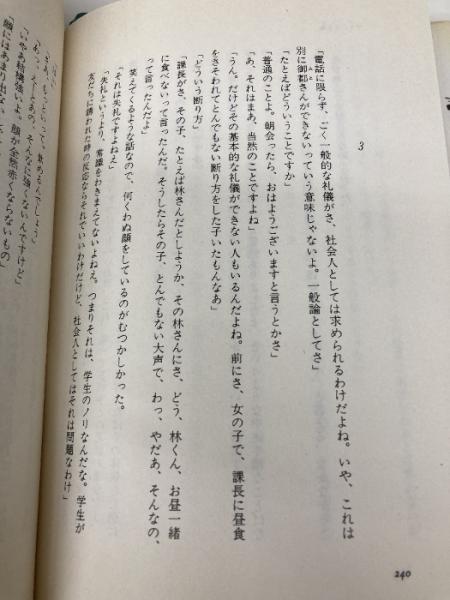 3
「電話に限らず、ごく一般的な礼儀がさ、社会人としては求められるわけだよね。いや、これは
別に御都さんができないっていう意味じゃないよ。一般論としてさ」
「たとえばどういうことですか」
「普通のことよ。朝会ったら、おはようございますと言うとかさ」
「あ、それはまあ、当然のことですよね」
「うん。だけどその基本的な礼儀ができない人もいるんだよね。前にさ、女の子で、課長に昼食
をさそわれてとんでもない断り方をした子いたもんなあ」
「どういう断り方」
「課長がさ、その子、たとえば林さんだとしようか、その林さんにさ、どう、林くん、お昼一緒
に食べないって言ったんだ。そうしたらその子、とんでもない大声で、わっ、やだあ、そんなの、
って言ったんだよ」
笑えてくるような話なので、何くわぬ顔をしているのがむつかしかった。
「それは失礼ですよねえ」
「失礼というより、常識をわきまえてないよねえ。つまりそれは、学生のノリなんだな。学生が
友だちに誘われた時の反応ならそれでいいわけだけど、社会人としてはそれは問題なわけ」
飲めるんでしょう」
そんなに強くないんですけど」
「いやあ結構強いよ。顔が全然赤くならないもの」
「顔にはあまり出ない
240